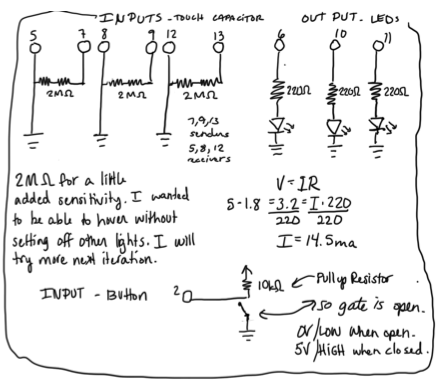 INPUTS - TOUCH CAPACITOR
OUT PUT - LEDs
5 7 8 9 12 13 6 10 11
2MΩ 2MΩ 2MΩ 220Ω 220Ω 220Ω
7,9,13
senders
5,8,12
recivers
2MΩ for a little
added sensitivity. I wanted
to be able to hover without
setting off other lights. I will
try more next iteration.
V=IR
5-1.8 = 3.2 = I·220
220 220
I = 14.5ma
INPUT - Button 2
10kΩ
Pullup Resistor
so gate is open.
0V/LOW when open.
5V/HIGH when closed.